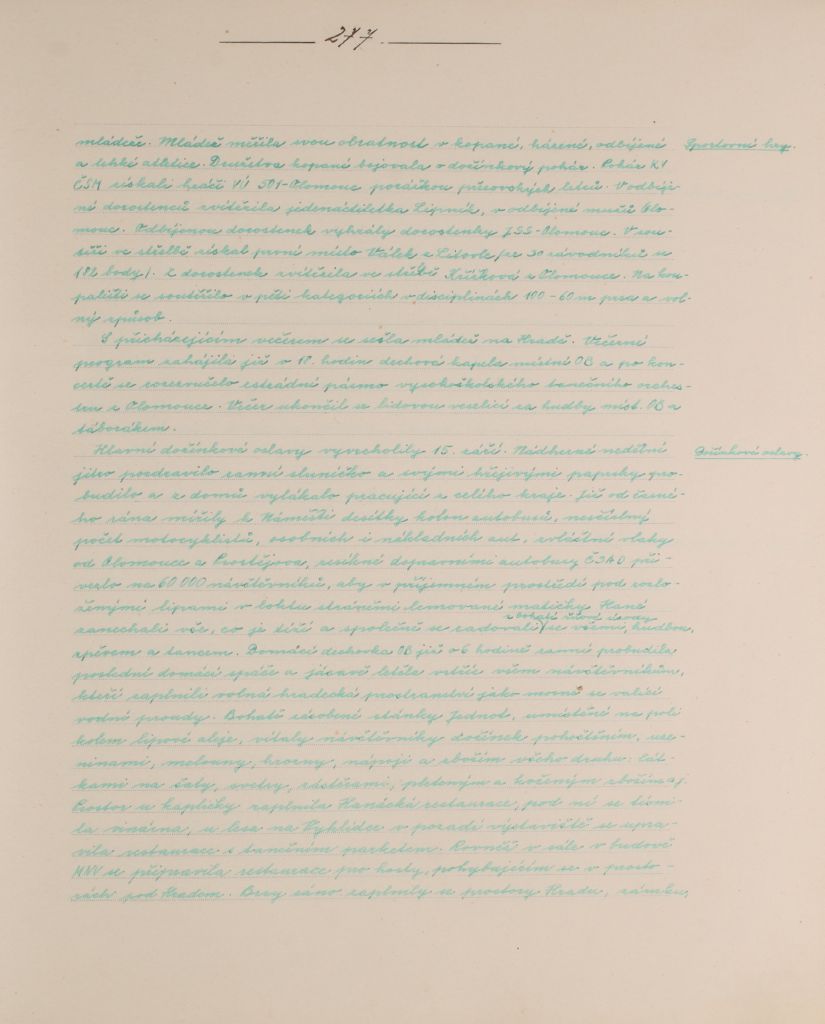 277.
mládeže. Mládež měřila svou obratnost v kopané, házené, odbíjené
Sportovní hry.
a lehké atletice. Družstva kopané bojovala o dožínkový pohár. Pohár KV
ČSM získali hráči VÚ 501-Olomouc porážkou přerovských letců. V odbíje-
né dorostenců zvítězila jedenáctiletka Lipník, v odbíjené mužů Olo-
mouc. Odbíjenou dorostenek vyhrály dorostenky JSŠ-Olomouc. V sou-
těži ve střelbě získal první místo Válek z Litovle /ze 30 závodníků se
182 body/. Z dorostenek zvítězila ve střelbě Křížková z Olomouce. Na kou-
pališti se soutěžilo v pěti kategoriích v disciplinách 100-60 m prsa a vol-
ný způsob.
S přicházejícím večerem se sešla mládež na Hradě. Večerní
program zahájila již v 18. hodin dechová kapela místní OB a po kon-
certě se rozezvučelo estrádní pásmo vysokoškolského tanečního orches-
tru z Olomouce. Večer ukončil se lidovou veselicí za hudby míst. OB a
táborákem.
Hlavní dožínkové oslavy vyvrcholily 15. září. Nádherné nedělní
Dožínkové oslavy.
jitro pozdravilo ranní sluníčko a svými hřejivými paprsky pro-
budilo a z domů vylákalo pracující z celého kraje. Již od časné-
ho rána mířily k Náměšti desítky kolon autobusů, nesčíslný
počet motocyklistů, osobních i nákladních aut, zvláštní vlaky
od Olomouce a Prostějova, posílené dopravními autobusy ČSAD při-
vezlo na 60 000 návštěvníků, aby v příjemném prostředí pod rozlo-
ženými lipami v loktu stráněmi lemované matičky Hané
zanechali vše, co je tíží a společně se radovali z bohaté žírné úrody se všemi, hudbou,
zpěvem a tancem. Domácí dechovka OB již v 6 hodin ranní probudila
poslední domácí spáče a jásavě letěla vstříc všem návštěvníkům,
kteří zaplnili volná hradecká prostranství jako mocné se valící
vodní proudy. Bohatě zásobené stánky Jednot, umístěné na poli
kolem lipové aleje, vítaly návštěvníky dožínek pohoštěním, uze-
ninami, melouny, hrozny, nápoji a zbožím všeho druhu: lát-
kami na šaty, svetry, zástěrami, pleteným a koženým zbožím aj.
Prostor u kapličky zaplnila Hanácká restaurace, pod ní se tísni-
la vinárna, u lesa na Vyhlídce v pozadí výstaviště se upra-
vila restaurace s tanečním parketem. Rovněž v sále v budově
MNV se připravila restaurace pro hosty, pohybujícím se v prosto-
rách pod Hradem. Brzy ráno zaplnily se prostory Hradu, zámku,